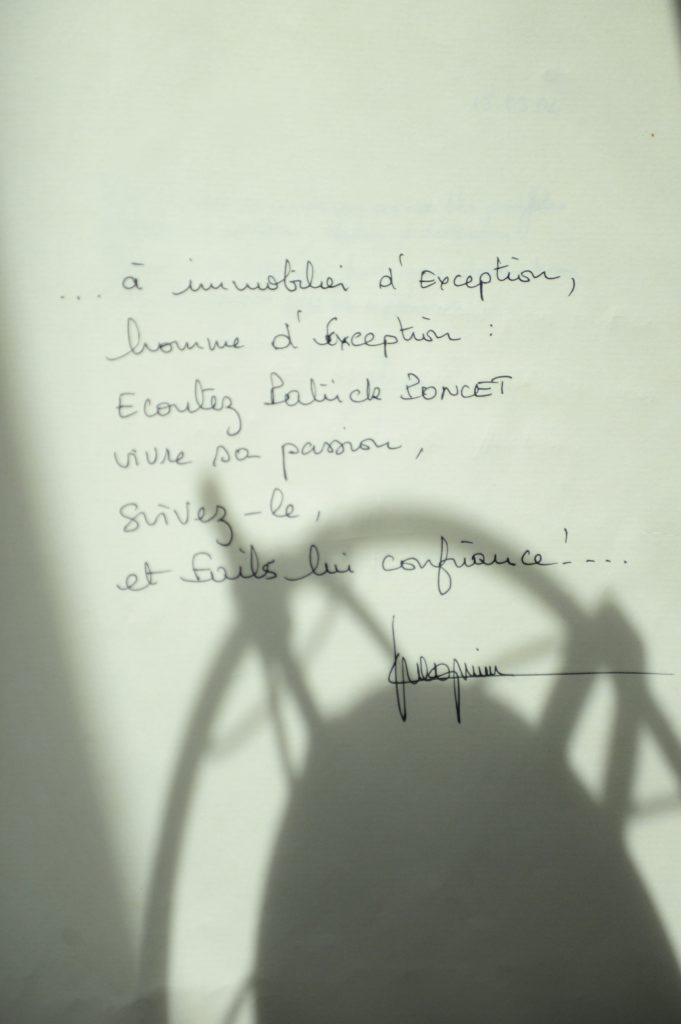 ... à immobilier d'Exception,
homme d'Exception :
Ecoutez Patrick PONCET
vivre sa passion,
suivez-le,
et faits lui confiance!....